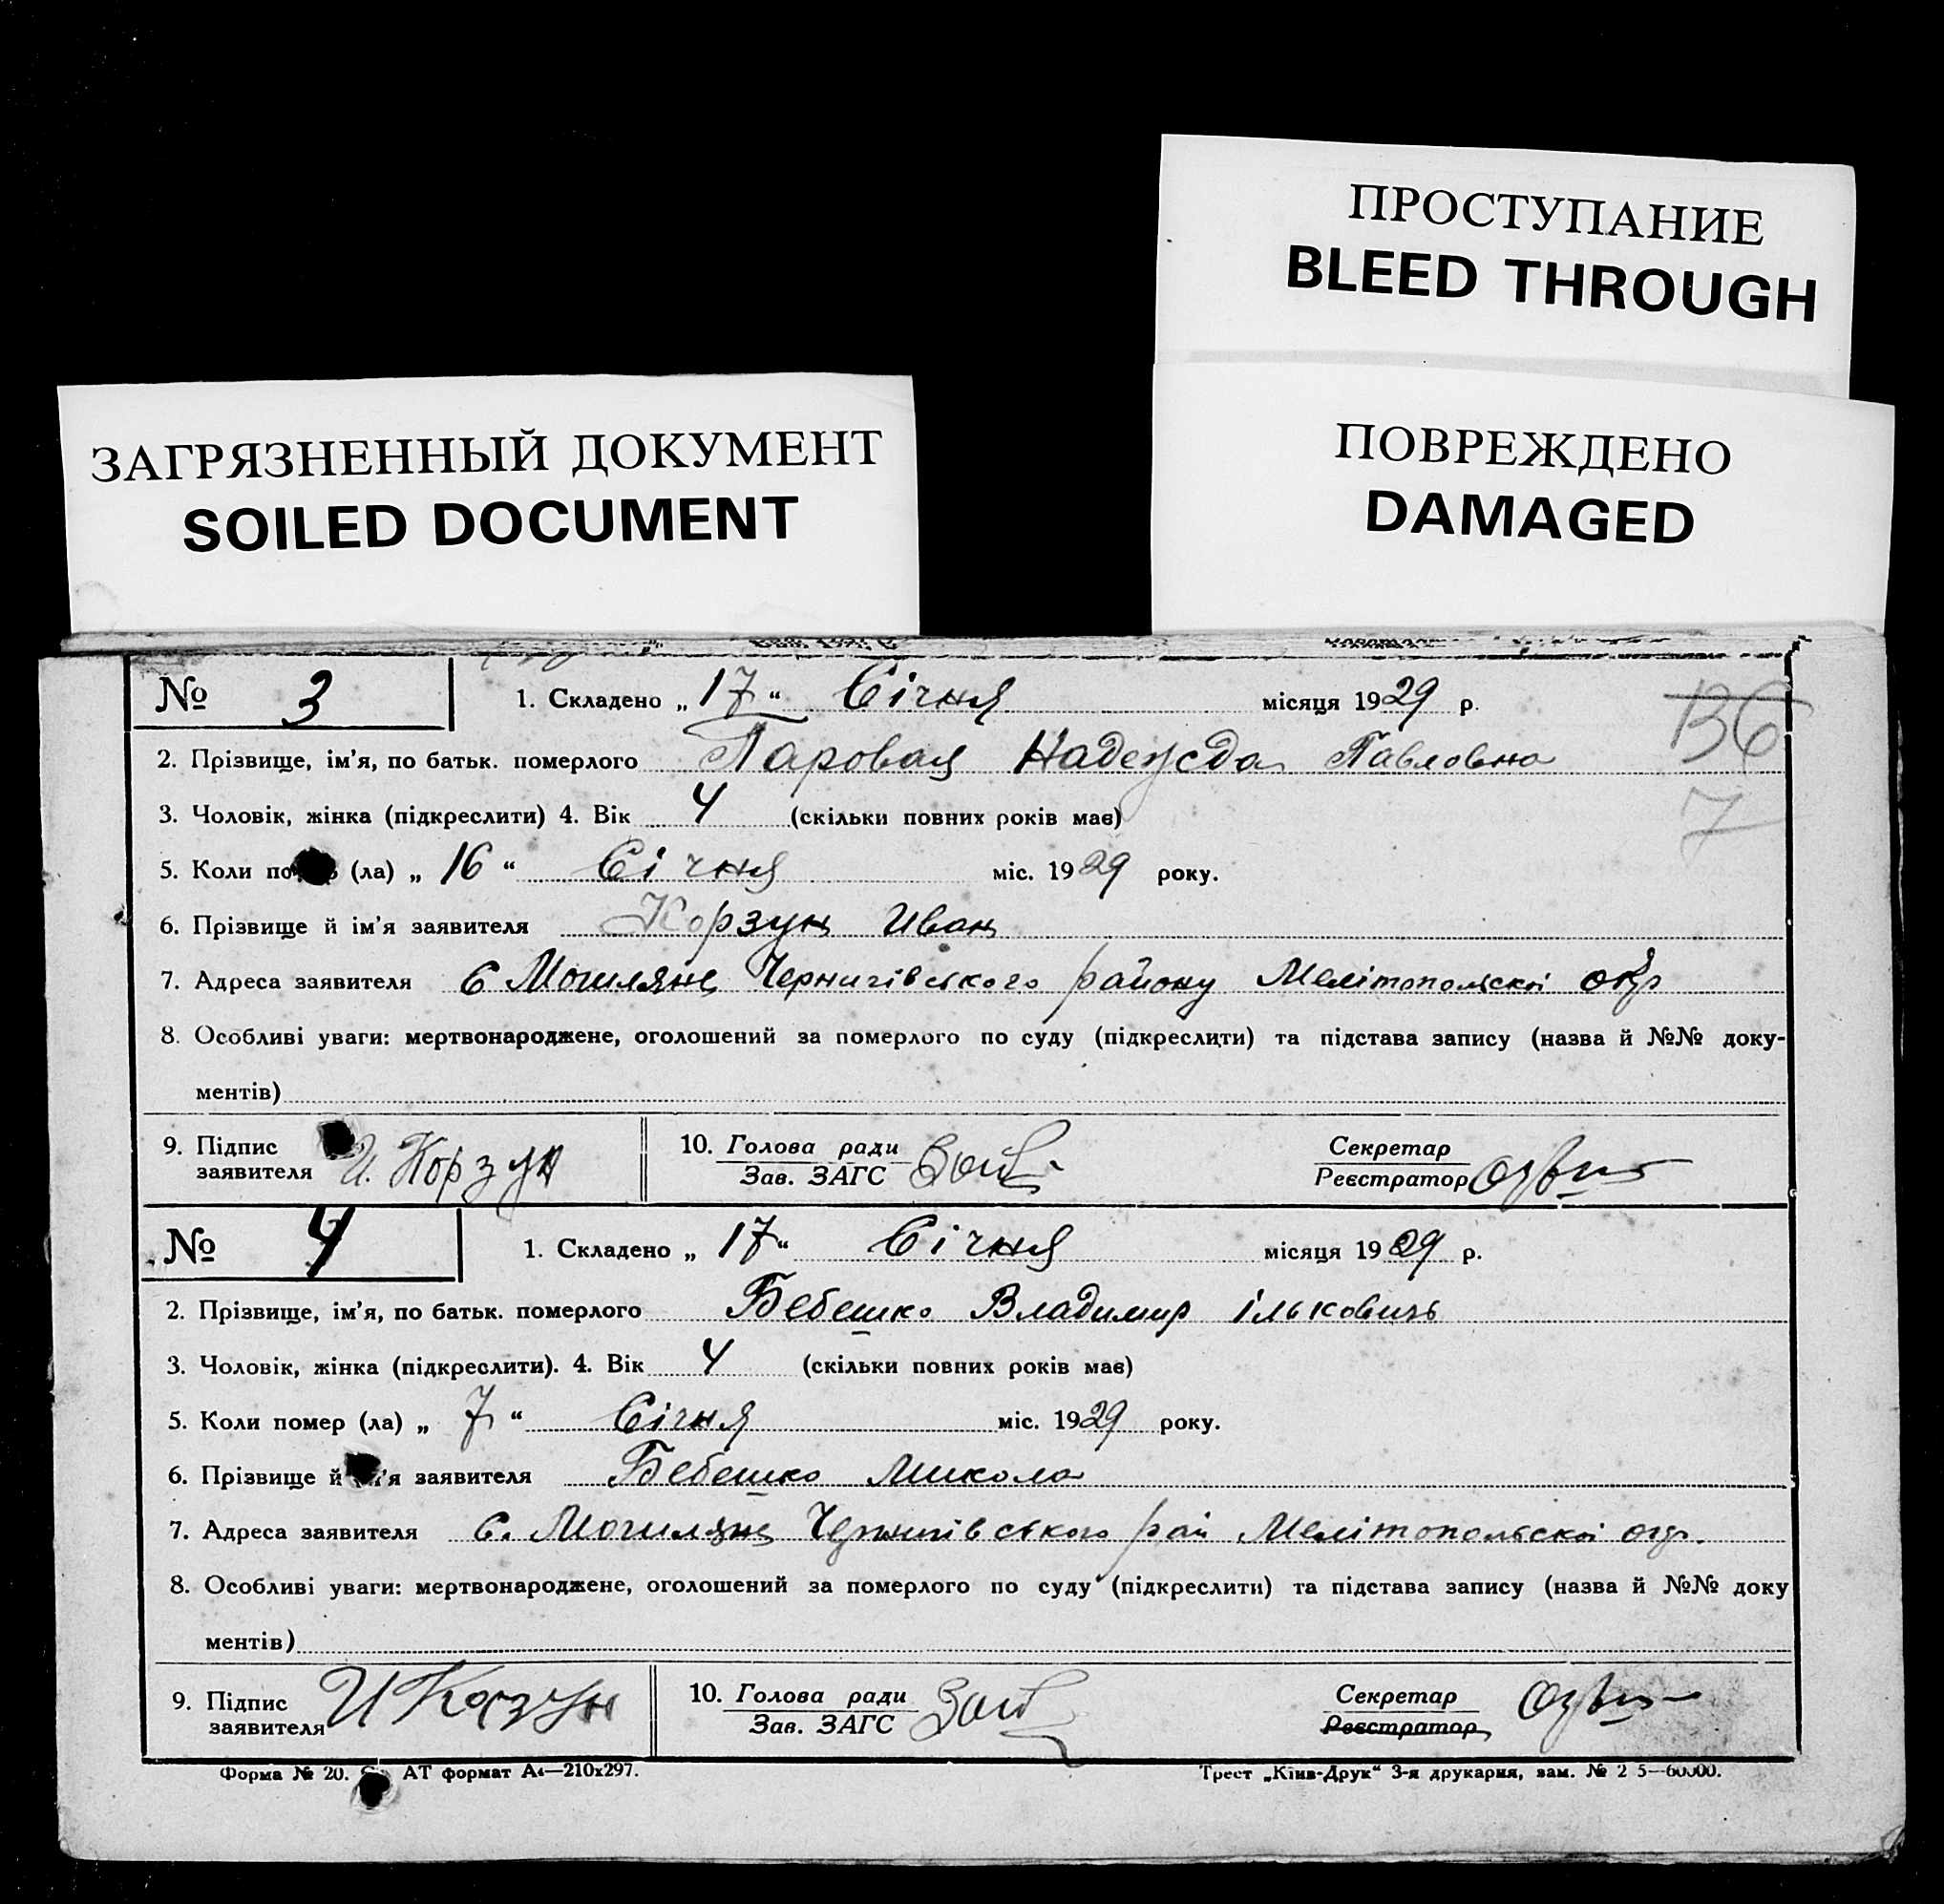 ПРОСТУПАНИЕ
BLEED THROUGH
ЗАГРЯЗНЕННЫЙ ДОКУМЕНТ
SOILED DOCUMENT
ПОВРЕЖДЕНО
DAMAGED
№ 3 1. Складено „ 17 “ Січня місяця 1929 р.
136
2. Прізвище, ім'я, по батьк. померлого Паровая Надежда Павловна
7
3. Чоловік, жінка (підкреслити) 4. Вік 4 (скільки повних років має)
5. Коли (ла) „ 16 “ Січня міс. 1929 року.
6. Прізвище й ім'я заявителя Корзун Иван
7. Адреса заявителя С Могиляни Чернигівського району Мелітопольскої
8. Особливі уваги: мертвонароджене, оголошений за померлого по суду (підкреслити) та підстава запису (назва й №№ доку-
ментів)
9. Підпис заявителя И. Корзун 10. Голова ради Зав. ЗАГС Секретар Реєстратор
№ 4 1. Складено „ 17 “ Січня місяця 1929 р.
2. Прізвище, ім'я, по батьк. померлого Бебешко Владимир Ількович
3. Чоловік, жінка (підкреслити). 4. Вік 4 (скільки повних років має)
5. Коли помер (ла) „ 7 “ Січня міс. 1929 року.
6. Прізвище й заявителя Бебешко Микола
7. Адреса заявителя С. Могиляни Чернигівського рай Мелітопольскої
8. Особливі уваги: мертвонароджене, оголошений за померлого по суду (підкреслити) та підстава запису (назва й №№ доку
ментів)
9. Підпис заявителя И Корзун 10. Голова ради Зав. ЗАГС Секретар Реєстратор
Форма № 20. АТ формат А4—210x297. Трест „Київ-Друк“ 3-я друкарня, зам. №